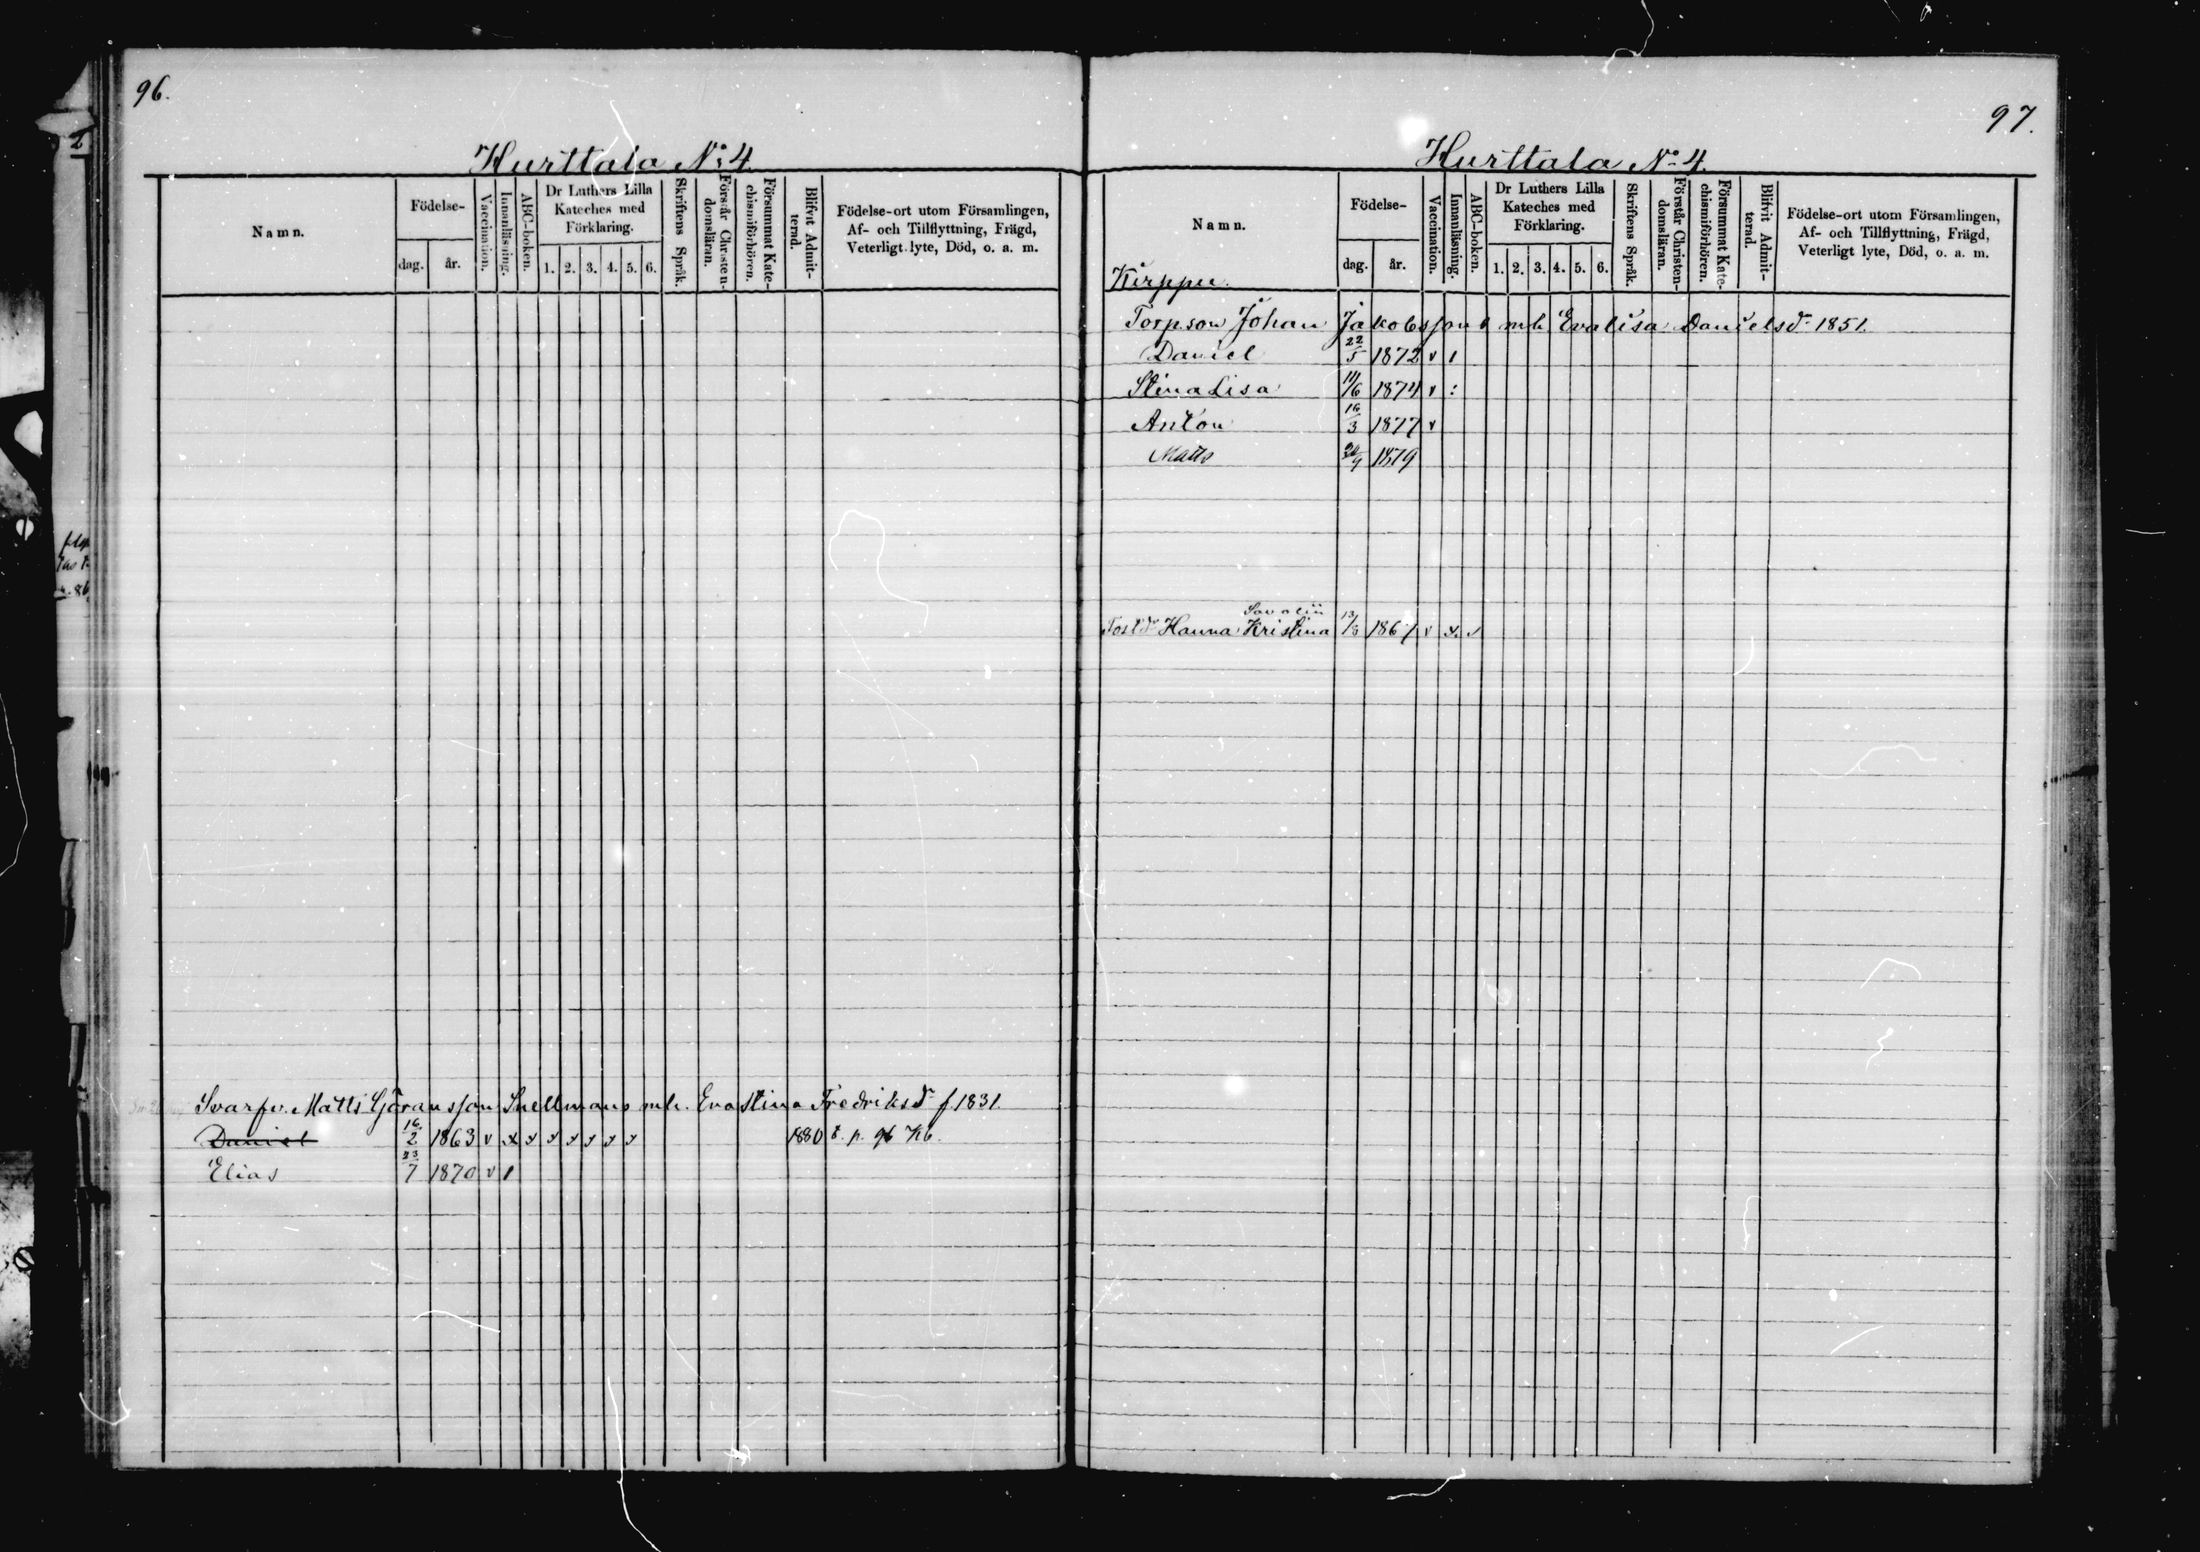 96.
Hurttala No 4
Namn.
Födelse-
dag.
år.
Vaccination.
Innanläsning.
ABC-boken.
Dr Luthers Lilla
Kateches med
Förklaring.
1. 2. 3. 4. 5. 6.
Skriftens Språk.
Förstår Christen-
domsläran.
Försummat Kate-
chismiförhören.
Blifvit Admit-
terad.
Födelse-ort utom Församlingen,
Af- och Tillflyttning, Frägd,
Veterligt lyte, Död, o. a. m.
Svarfv. Matts Göransson Snellmans mh. Evastina Fredriksdr f. 1831.
Daniel 16/2 1863 v x x x x x x x 1880 t. p. 96 Kb.
Elias 23/7 1870 v 1
97.
Hurttala No 4.
Namn.
Födelse-
dag.
år.
Vaccination.
Innanläsning.
ABC-boken.
Dr Luthers Lilla
Kateches med
Förklaring.
1. 2. 3. 4. 5. 6.
Skriftens Språk.
Förstår Christen-
domsläran.
Försummat Kate-
chismiförhören.
Blifvit Admit-
terad.
Födelse-ort utom Församlingen,
Af- och Tillflyttning, Frägd,
Veterligt lyte, Död, o. a. m.
Kirppu.
Torpson Johan Jakobsson mh Evalisa Danielsdr 1851.
Daniel 22/5 1872 v 1
Stina Lisa 11/6 1874 v :
Anton 16/3 1877 v
Matts 1879
Savolin
Fostdr Hanna Kristina 1867 v x x